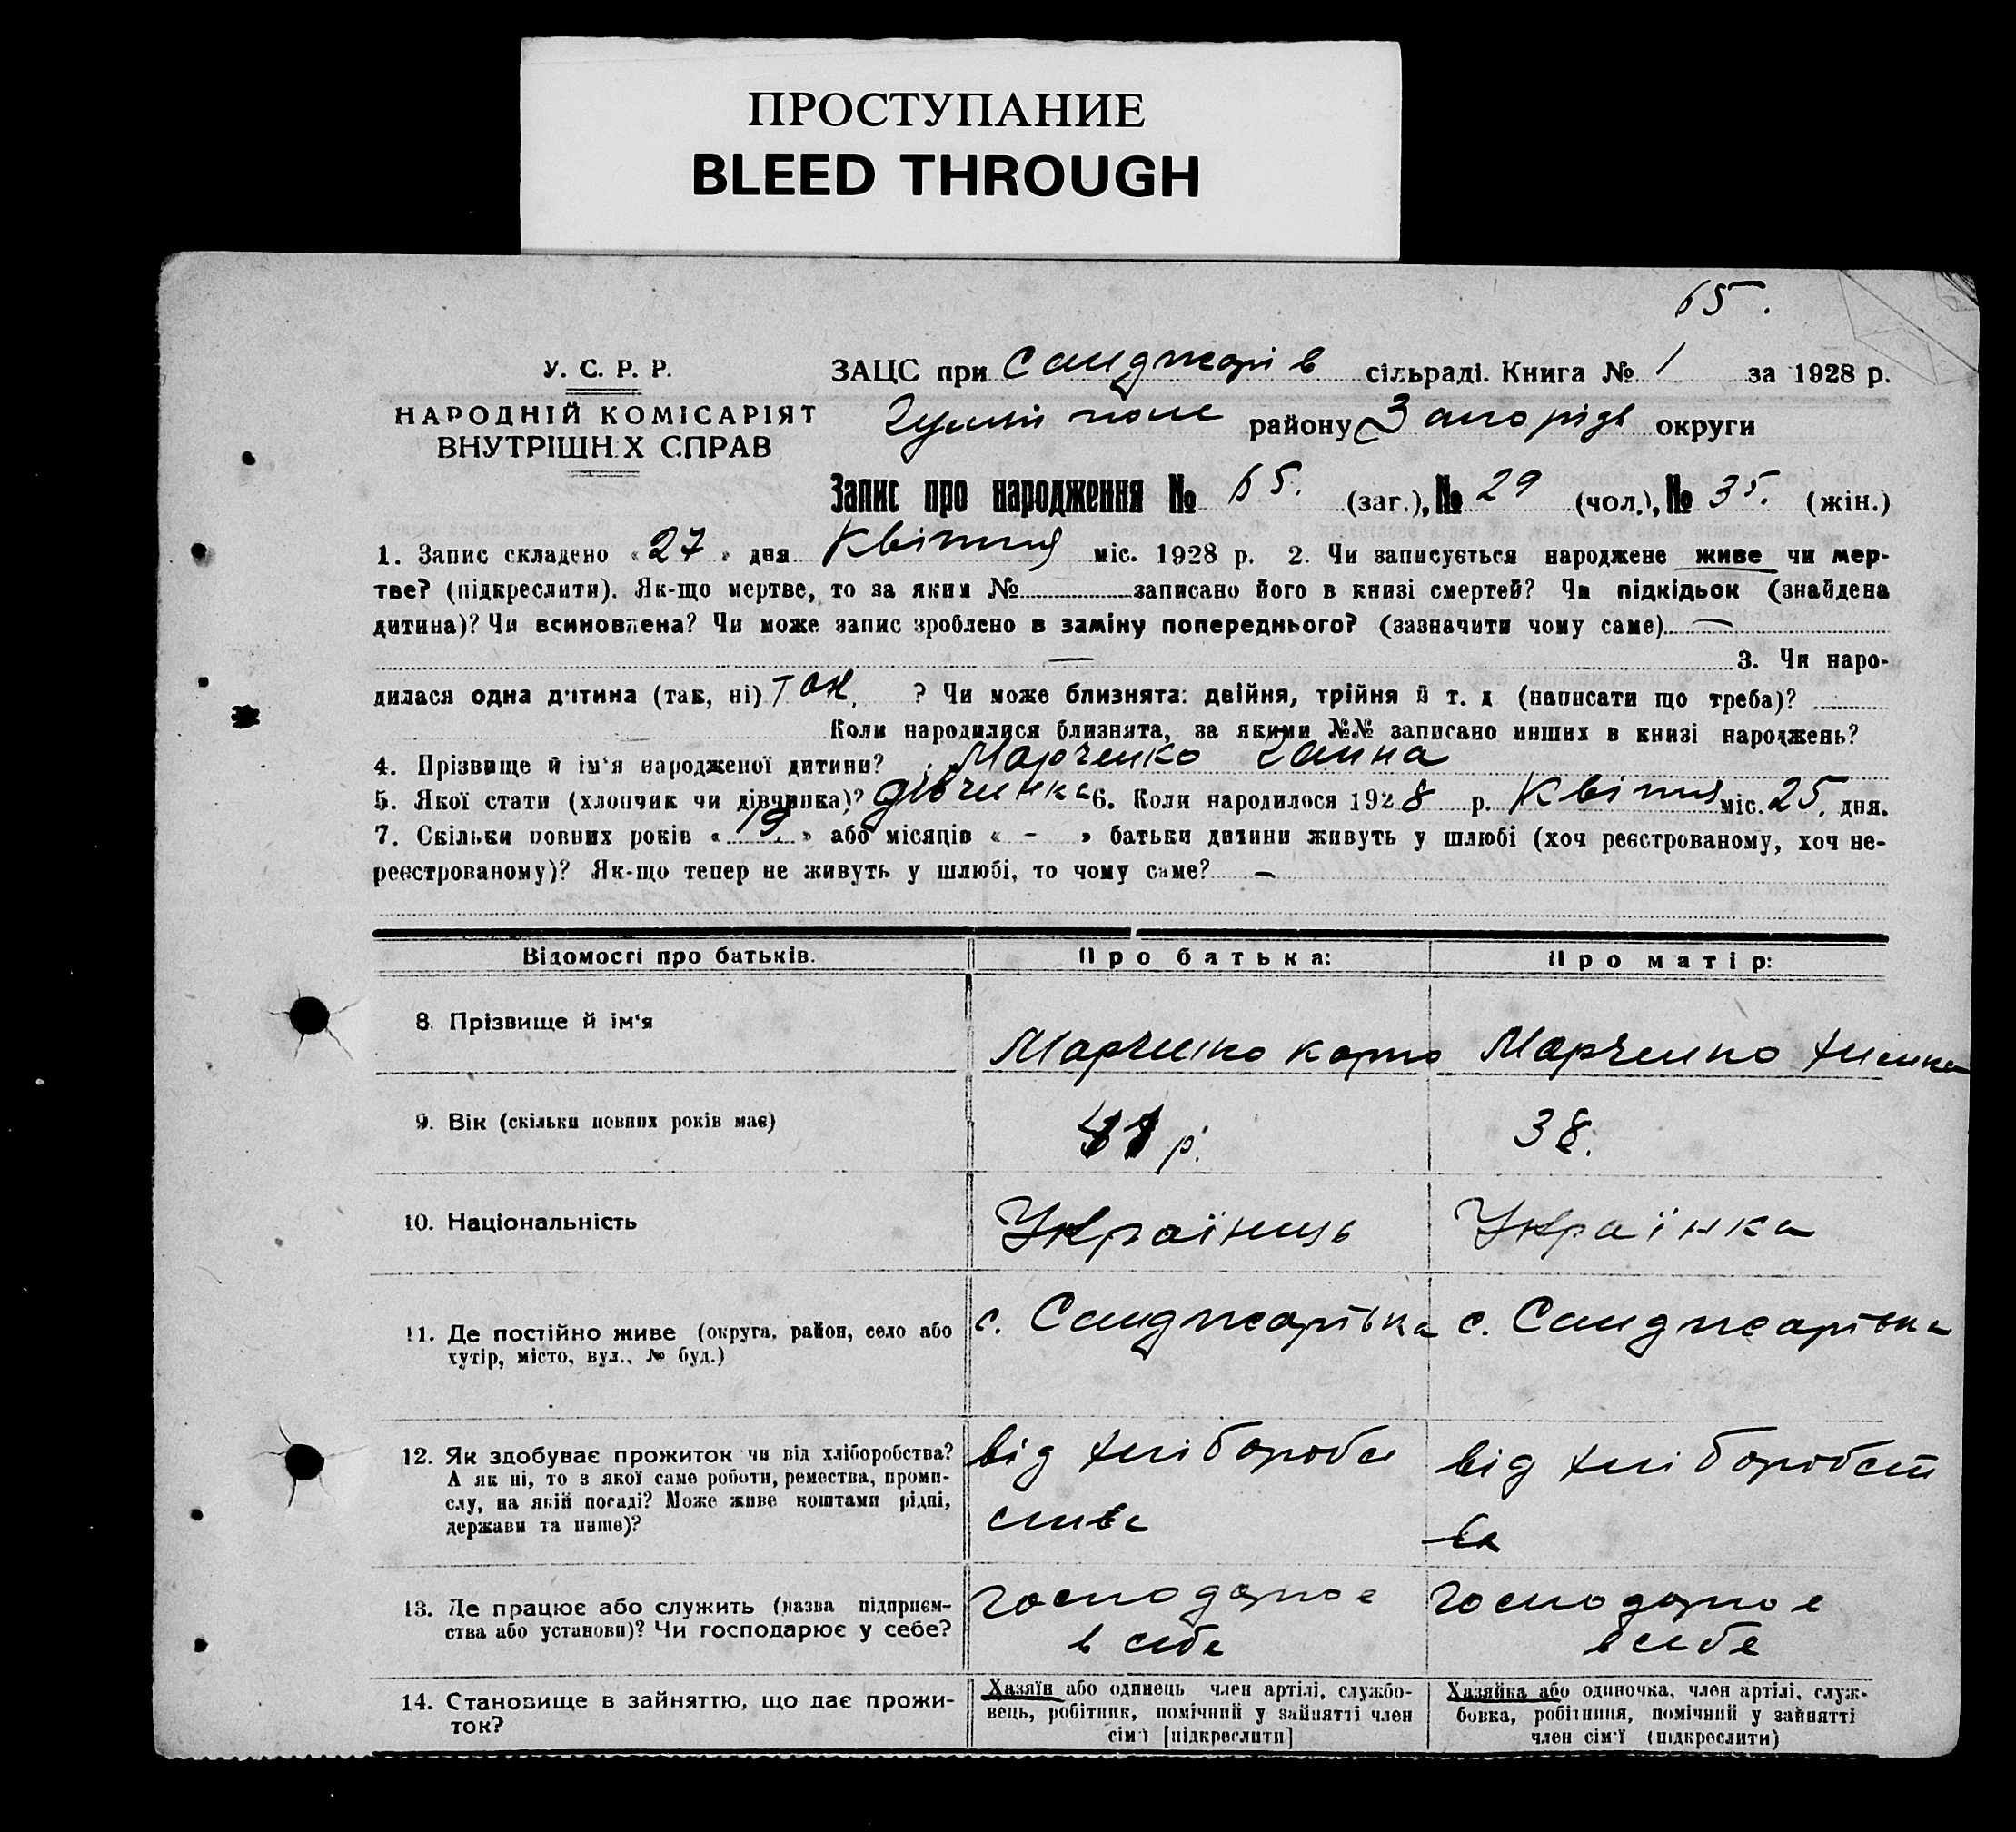 ПРОСТУПАНИЕ
BLEED THROUGH
65.
У. С. Р. Р.
НАРОДНІЙ КОМІСАРІЯТ
ВНУТРІШН.Х СПРАВ
ЗАЦС при Санджарів сільраді. Книга № 1 за 1928 р.
Гуляй поле району Запорізь округи
Запис про народження № 65. (заг.), № 29 (чол.), № 35. (жін.)
1. Запис складено « 27 » дня Квітня міс. 1928 р. 2. Чи записується народжене живе чи мер-
тве? (підкреслити). Як-що мертве, то за яким № записано його в книзі смертей? Чи підкідьок (знайдена
дитина)? Чи всиновлена? Чи може запис зроблено в заміну попереднього? (зазначити чому саме) —
— 3. Чи наро-
дилася одна дитина (так, ні) так, ? Чи може близнята: двійня, трійня й т. д (написати що треба)?
Коли народилися близнята, за якими №№ записано инших в книзі народжень?
4. Прізвище й ім'я народженої дитини? Марченко Ганна
5. Якої стати (хлопчик чи дівчинка)? дівчинка 6. Коли народилося 1928 р. Квітня міс. 25. дня.
7. Скільки повних років « 19 » або місяців « - » батьки дитини живуть у шлюбі (хоч реєстрованому, хоч не-
реєстрованому)? Як-що тепер не живуть у шлюбі, то чому саме? —
Відомості про батьків. Про батька: Про матір:
8. Прізвище й ім'я Марченко Марченко
9. Вік (скільки повних років має) р. 38.
10. Національність Українець Українка
11. Де постійно живе (округа, район, село або
хутір, місто, вул., № буд.)
с. Санджарівка с. Санджарівка
12. Як здобуває прожиток чи від хліборобства?
А як ні, то з якої саме роботи, ремества, проми-
слу, на якій посаді? Може живе коштами рідні,
держави та инше)?
від хліборобс
тва
від хліборобст
ва
13. Де працює або служить (назва підприєм-
ства або установи)? Чи господарює у себе?
господарює
в себе
господарює
в себе
14. Становище в зайняттю, що дає прожи-
ток?
Хазяїн або одинець член артілі, службо-
вець, робітник, помічний у зайнятті член
сім'ї [підкреслити]
Хазяйка або одиночка, член артілі, служ-
бовка, робітниця, помічний у зайнятті
член сім'ї (підкреслити)